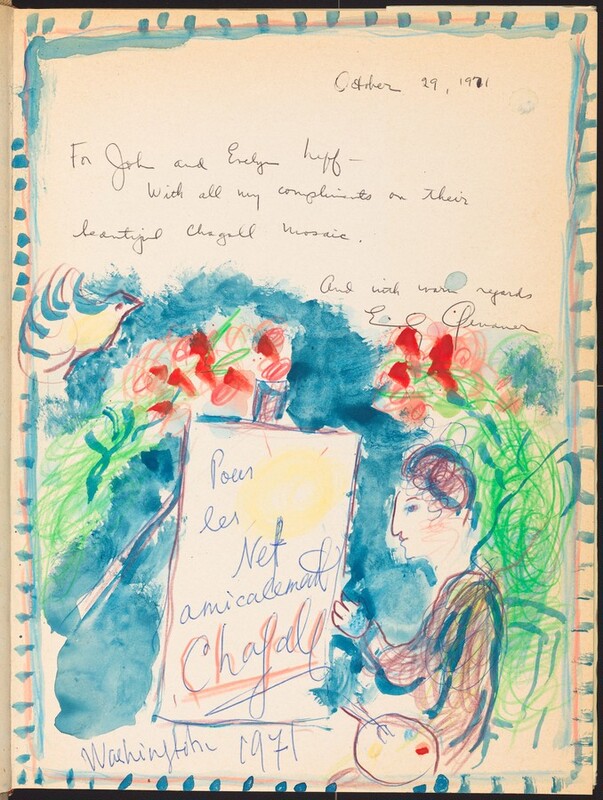 October 29, 1971
For John and Evelyn Nef—
With all my compliments on their
beautiful Chagall Mosaic.
And with warm regards
Genauer
Pour
les
Nef
amicalement
Chagall
Washington 1971